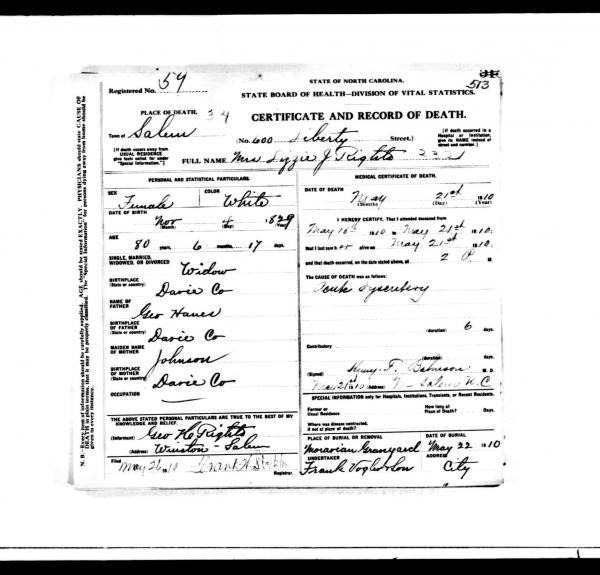 513
Registered No. 59
STATE OF NORTH CAROLINA.
STATE BOARD OF HEALTH—DIVISION OF VITAL STATISTICS.
PLACE OF DEATH. 34
CERTIFICATE AND RECORD OF DEATH.
Town of Salem
(No. 600 Liberty Street.)
[If death occurred in a Hospital or Institution, give its NAME instead of street and number]
[If death occurs away from USUAL RESIDENCE give facts called for under "Special Information."]
FULL NAME Mrs Lizzie J Rights
PERSONAL AND STATISTICAL PARTICULARS.
SEX Female
COLOR White
DATE OF BIRTH
Nov 4 1829
(Month) (Day) (Year)
AGE
80 years, 6 months, 17 days.
SINGLE, MARRIED, WIDOWED, OR DIVORCED Widow
BIRTHPLACE (State or country) Davie Co
NAME OF FATHER Geo Hanes
BIRTHPLACE OF FATHER (State or country) Davie Co
MAIDEN NAME OF MOTHER Johnson
BIRTHPLACE OF MOTHER (State or country) Davie Co
OCCUPATION
THE ABOVE STATED PERSONAL PARTICULARS ARE TRUE TO THE BEST OF MY KNOWLEDGE AND BELIEF.
(Informant) Geo H Rights
(Address) Winston-Salem
Filed May 26 1910
Registrar.
MEDICAL CERTIFICATE OF DEATH.
DATE OF DEATH
May 21st 1910
(Month) (Day) (Year)
I HEREBY CERTIFY, That I attended deceased from
May 16th 1910 to May 21st 1910:
that I last saw her alive on May 21st 1910:
and that death occurred, on the date stated above, at 2 P M.
The CAUSE OF DEATH was as follows:
Acute Dysentery
(duration) 6 days.
Contributory
(duration) days.
(Signed) Henry T. Bahnson M. D.
May 21st 1910 (Address) W-Salem N.C
SPECIAL INFORMATION only for Hospitals, Institutions, Transients, or Recent Residents.
Former or Usual Residence
How long at Place of Death? Days.
Where was disease contracted, if not at place of death?
PLACE OF BURIAL OR REMOVAL
Moravian Graveyard
DATE OF BURIAL
May 22 1910
UNDERTAKER
Frank Vogler & Son
ADDRESS
City
N. B.—Every item of information should be carefully supplied. AGE should be stated EXACTLY. PHYSICIANS should state CAUSE OF DEATH in plain terms, that it may be properly classified. The "Special Information" for persons dying away from home should be given in every instance.